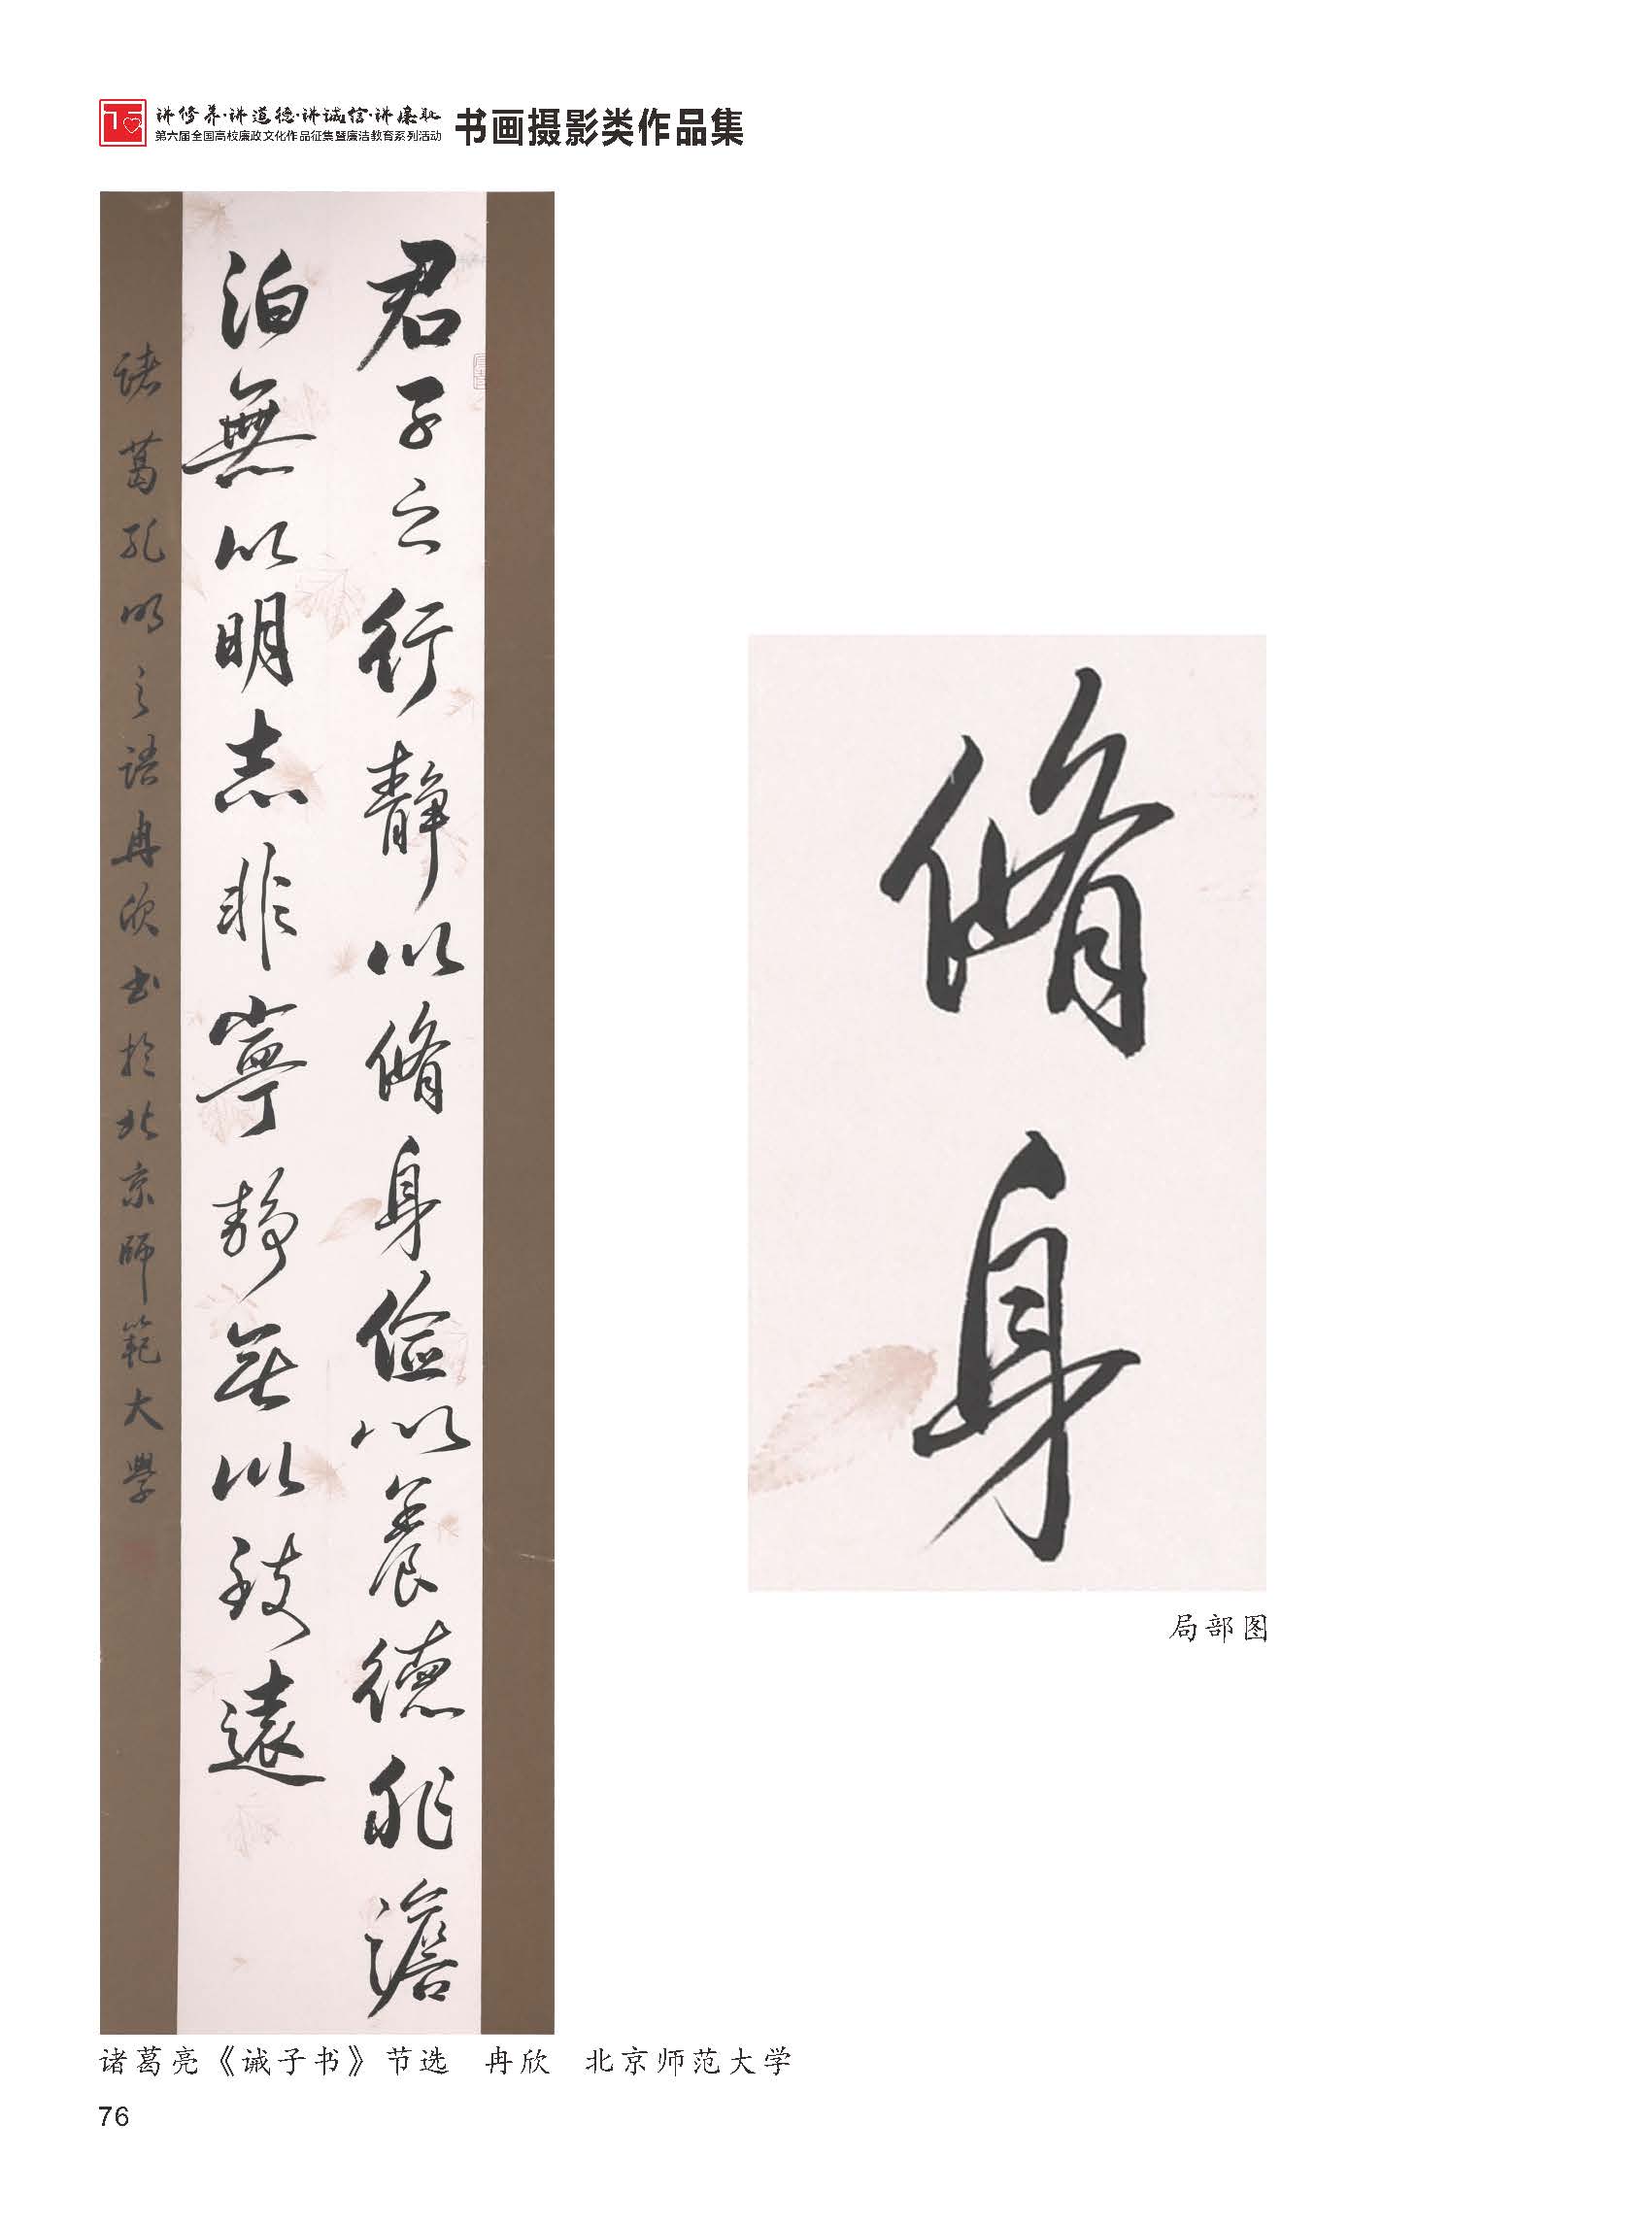 讲修养·讲道德·讲诚信·讲廉耻
第六届全国高校廉政文化作品征集暨廉洁教育系列活动
书画摄影类作品集
君子之行靜以脩身儉以養德非澹
泊無以明志非寧靜無以致遠
諸葛孔明之語冉欣书於北京師範大學
脩身
局部图
诸葛亮《诫子书》节选 冉欣 北京师范大学
76